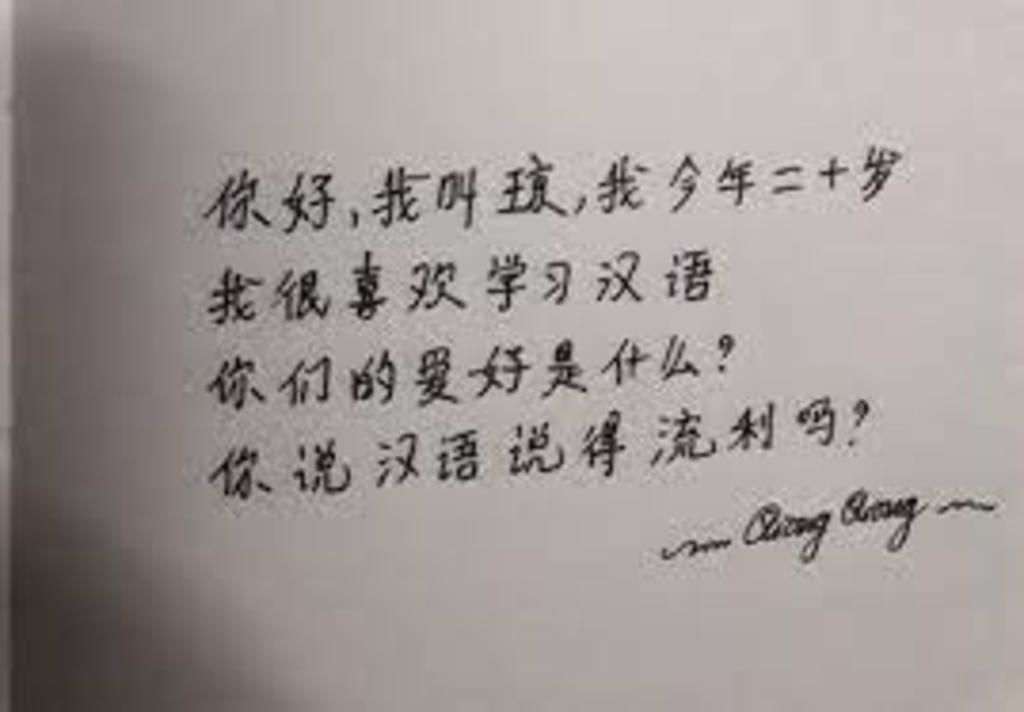 你好,我叫琼,我今年二十岁
我很喜欢学习汉语
你们的爱好是什么?
你说汉语说得流利吗?
Qiong Qiong